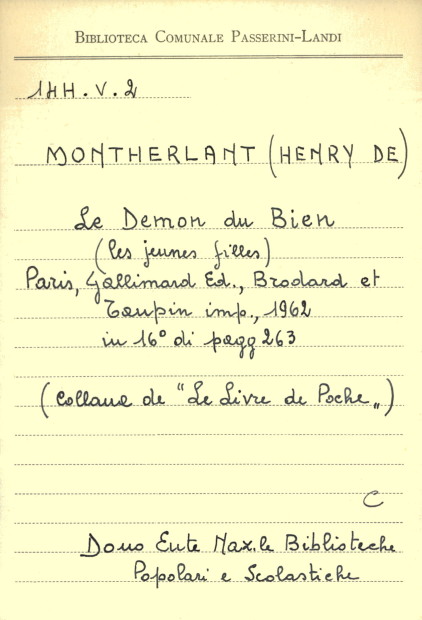 BIBLIOTECA COMUNALE PASSERINI-LANDI
1HH.V.2
MONTHERLANT (HENRY DE)
Le Demon du Bien
(les jeunes filles)
Paris, Gallimard Ed., Brodard et
Taupin imp., 1962
in 16° di pagg 263
(collana de "Le Livre de Poche")
C
Dono Ente Naz.le Biblioteche
Popolari e Scolastiche